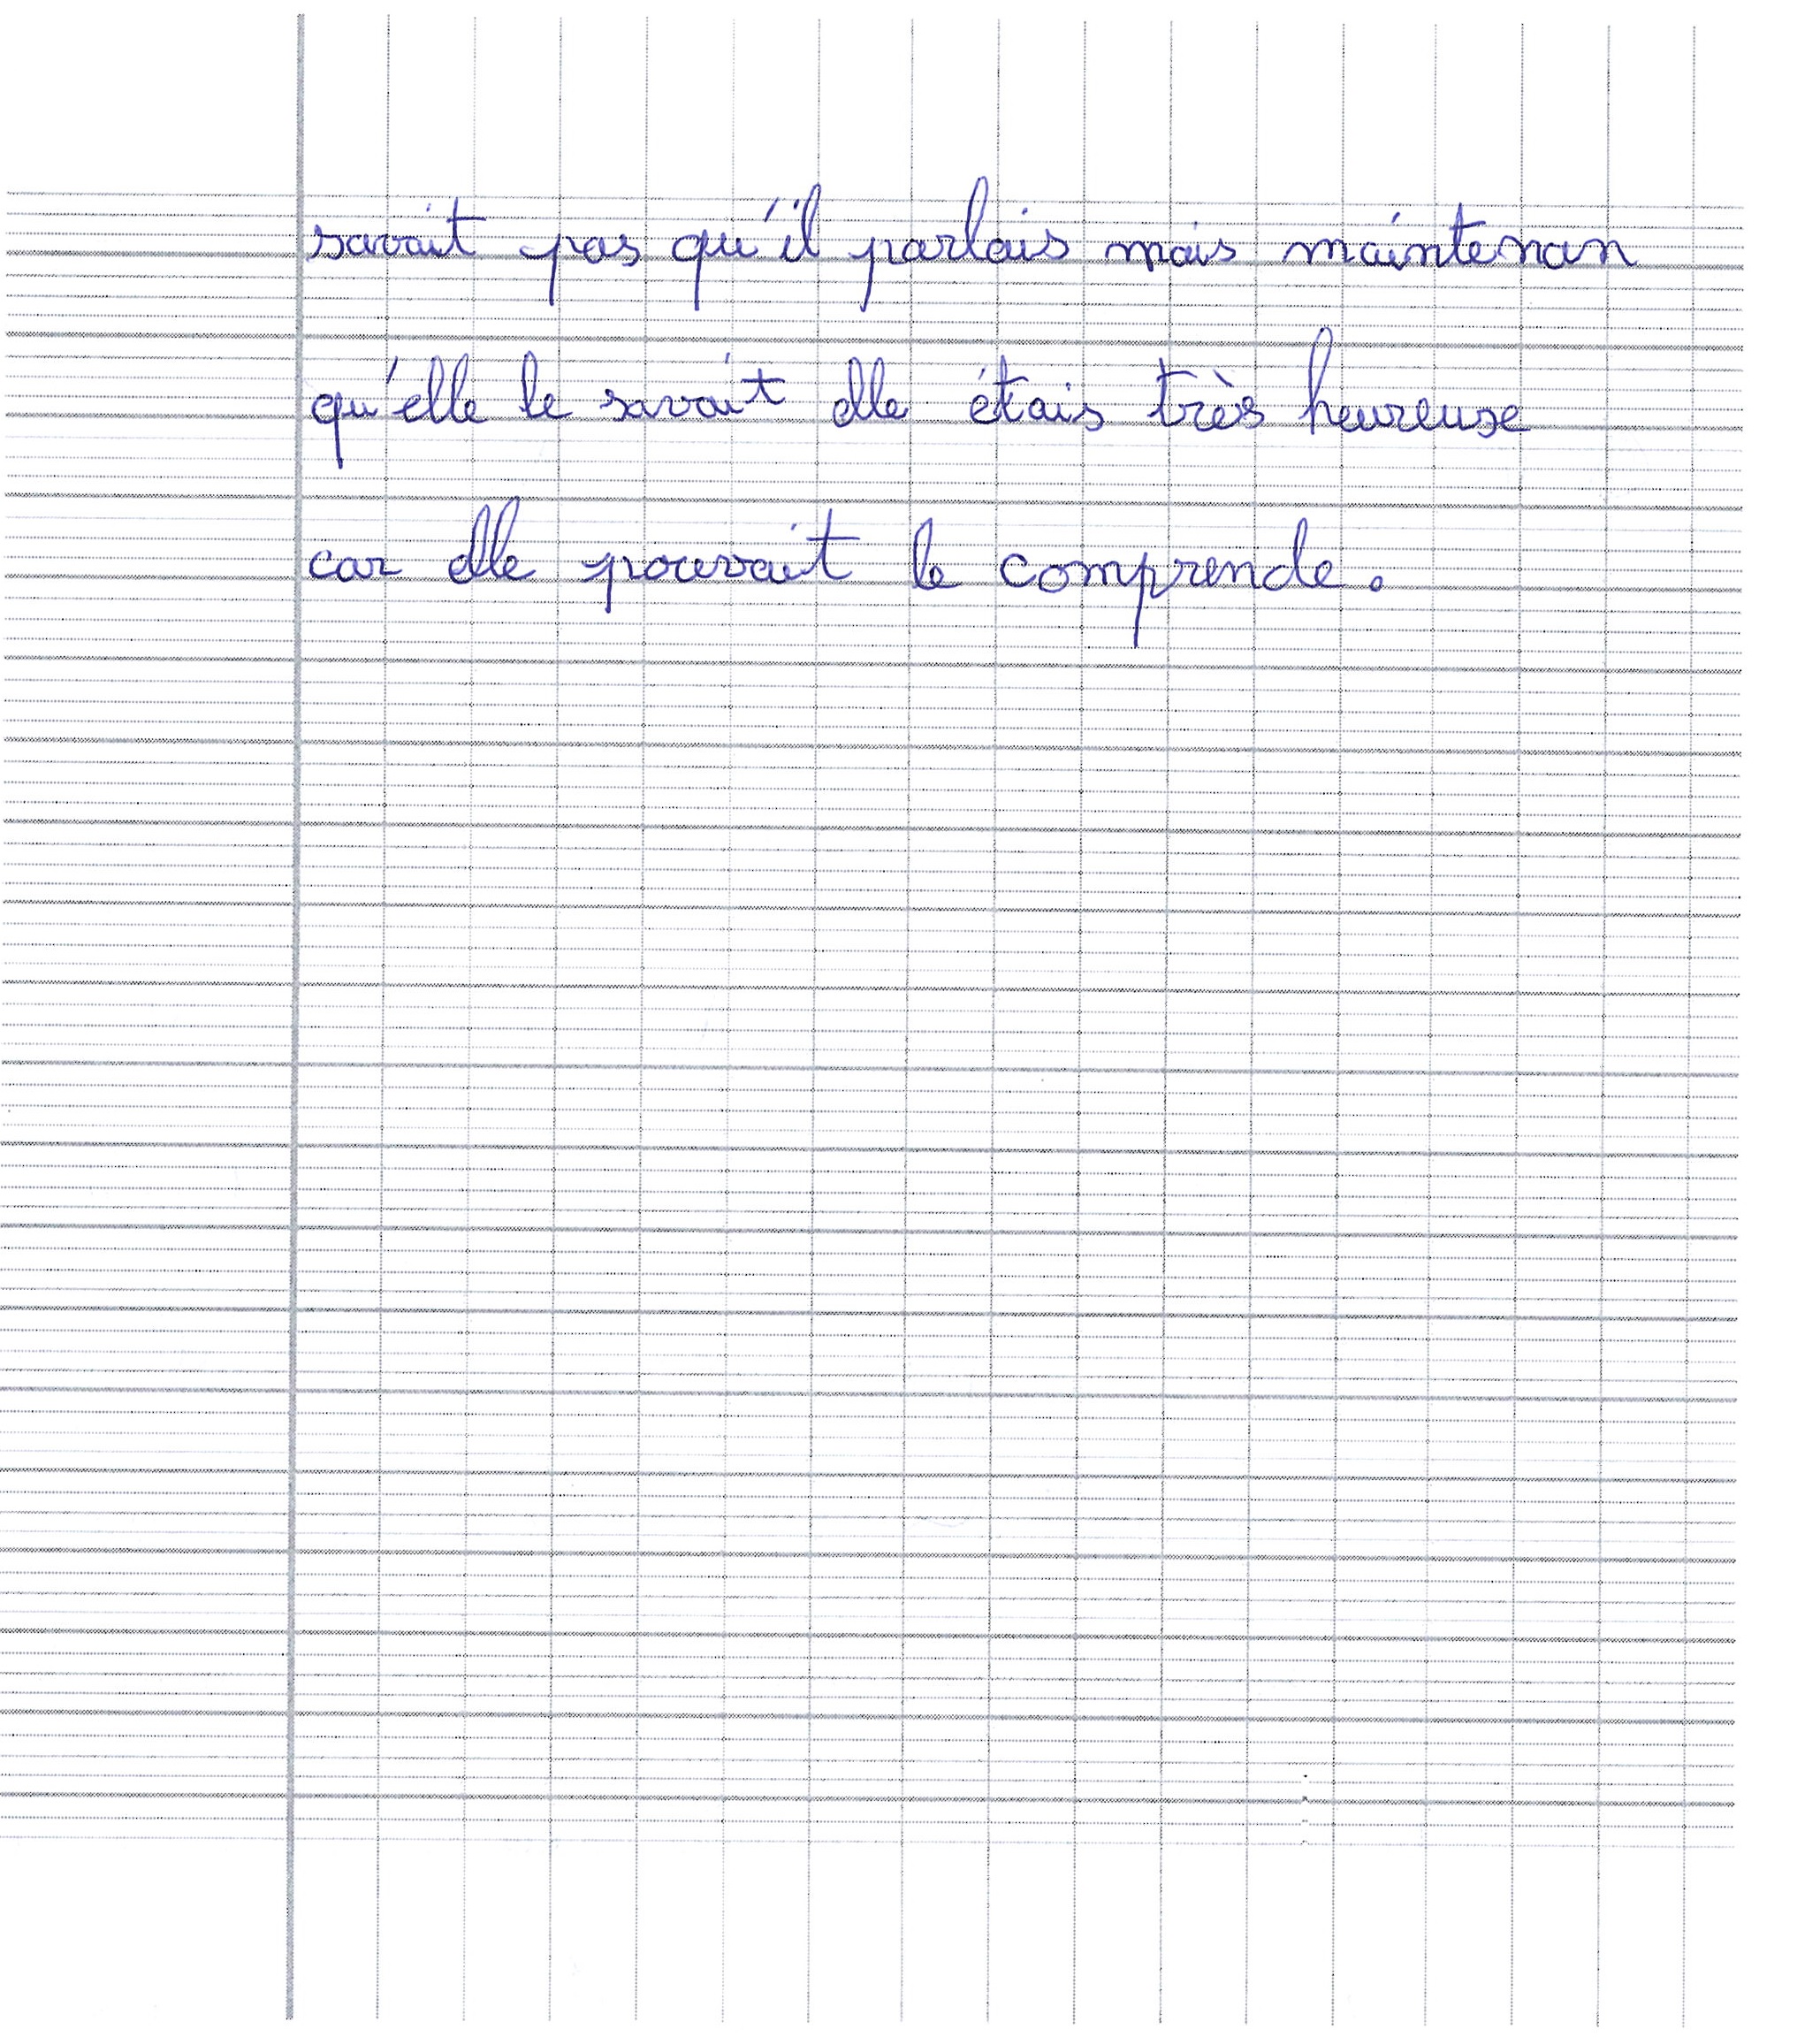 savait pas qu'il parlais mais maintenan
qu'elle le savait elle étais très heureuse
car elle pouvait le comprende.